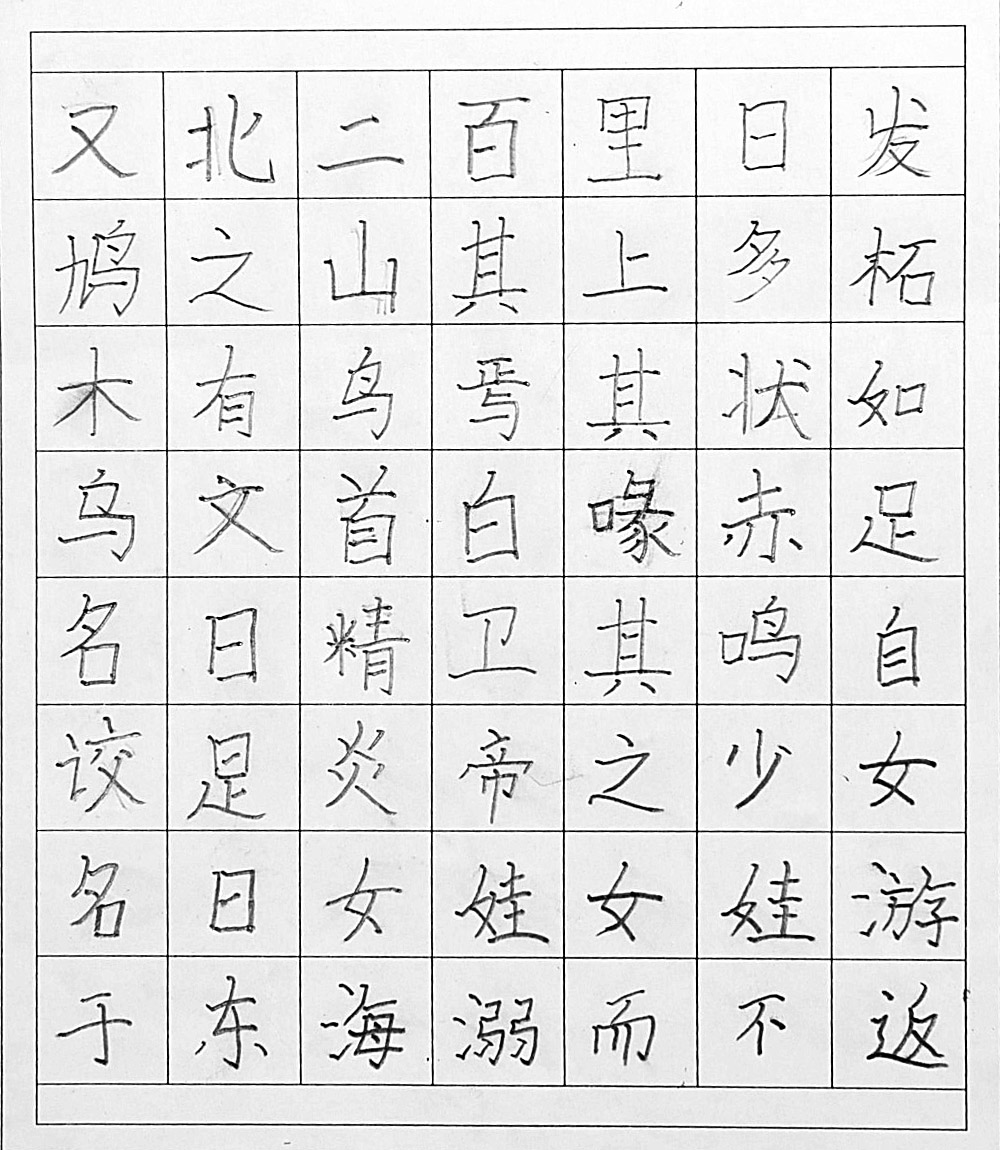 又北二百里日发
鸠之山其上多柘
木有鸟焉其状如
乌文首白喙赤足
名日精卫其鸣自
詨是炎帝之少女
名日女娃女娃游
于东海溺而不返